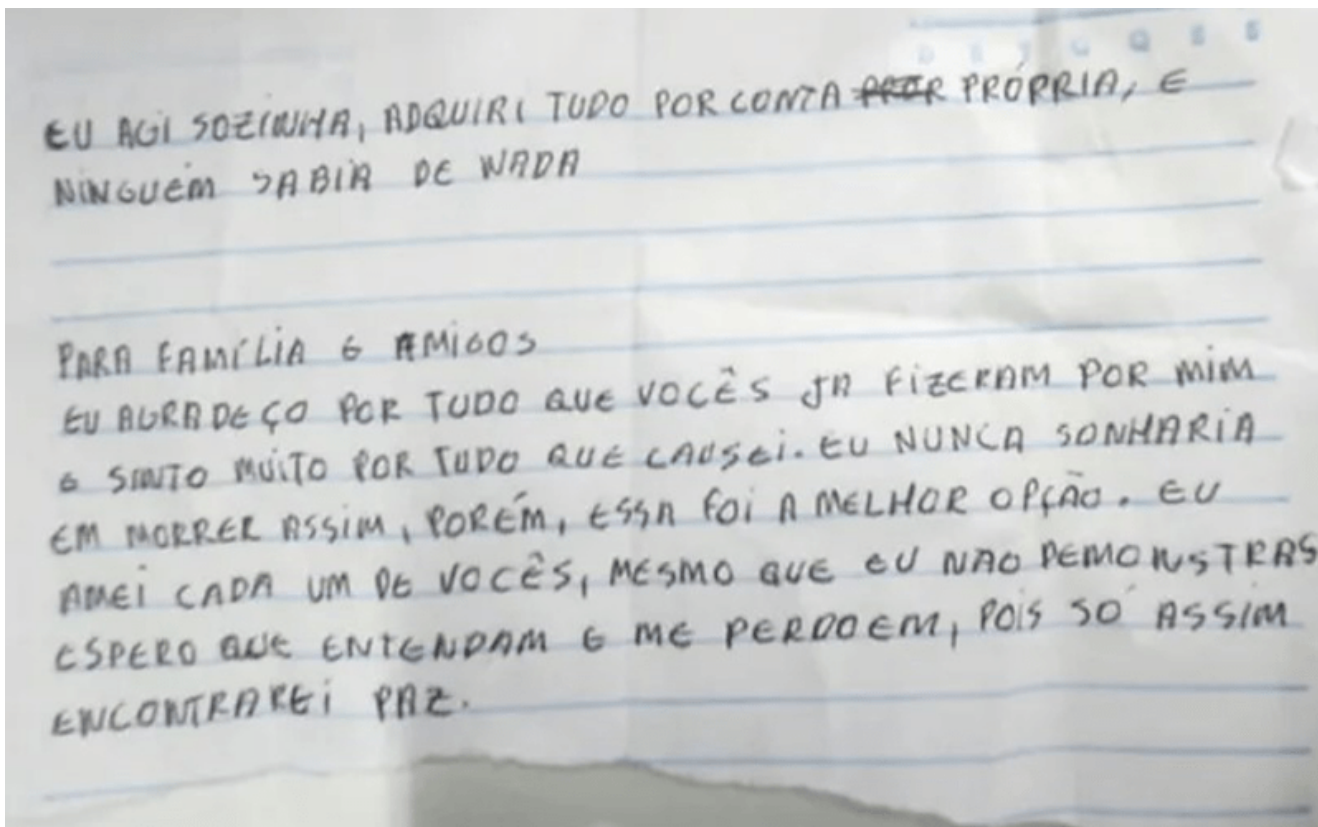 EU AGI SOZINHA, ADQUIRI TUDO POR CONTA PRÓPRIA, E
NINGUÉM SABIA DE NADA
PARA FAMÍLIA E AMIGOS
EU AGRADEÇO POR TUDO QUE VOCÊS JA FIZERAM POR MIM
E SINTO MUITO POR TUDO QUE CAUSEI. EU NUNCA SONHARIA
EM MORRER ASSIM, PORÉM, ESSA FOI A MELHOR OPÇÃO. EU
AMEI CADA UM DE VOCÊS, MESMO QUE EU NÃO DEMONSTRAS
ESPERO QUE ENTENDAM E ME PERDOEM, POIS SÓ ASSIM
ENCONTRAREI PAZ.